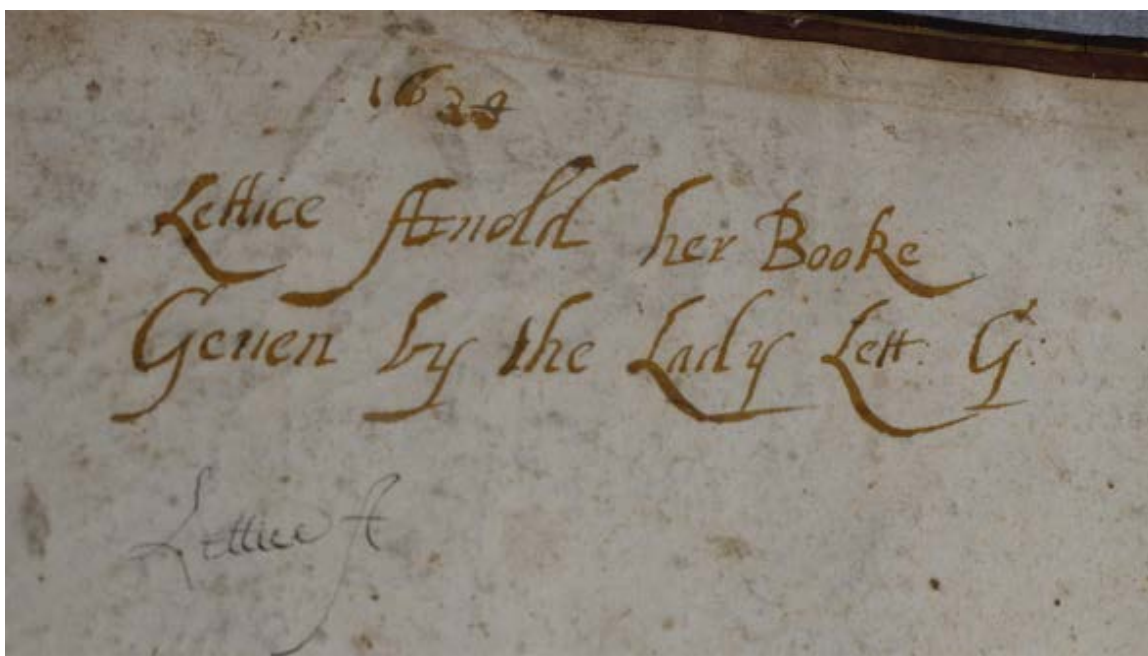 Lettice Arnold her Booke
Geuen by the Lady Lett: G:
Lettice A